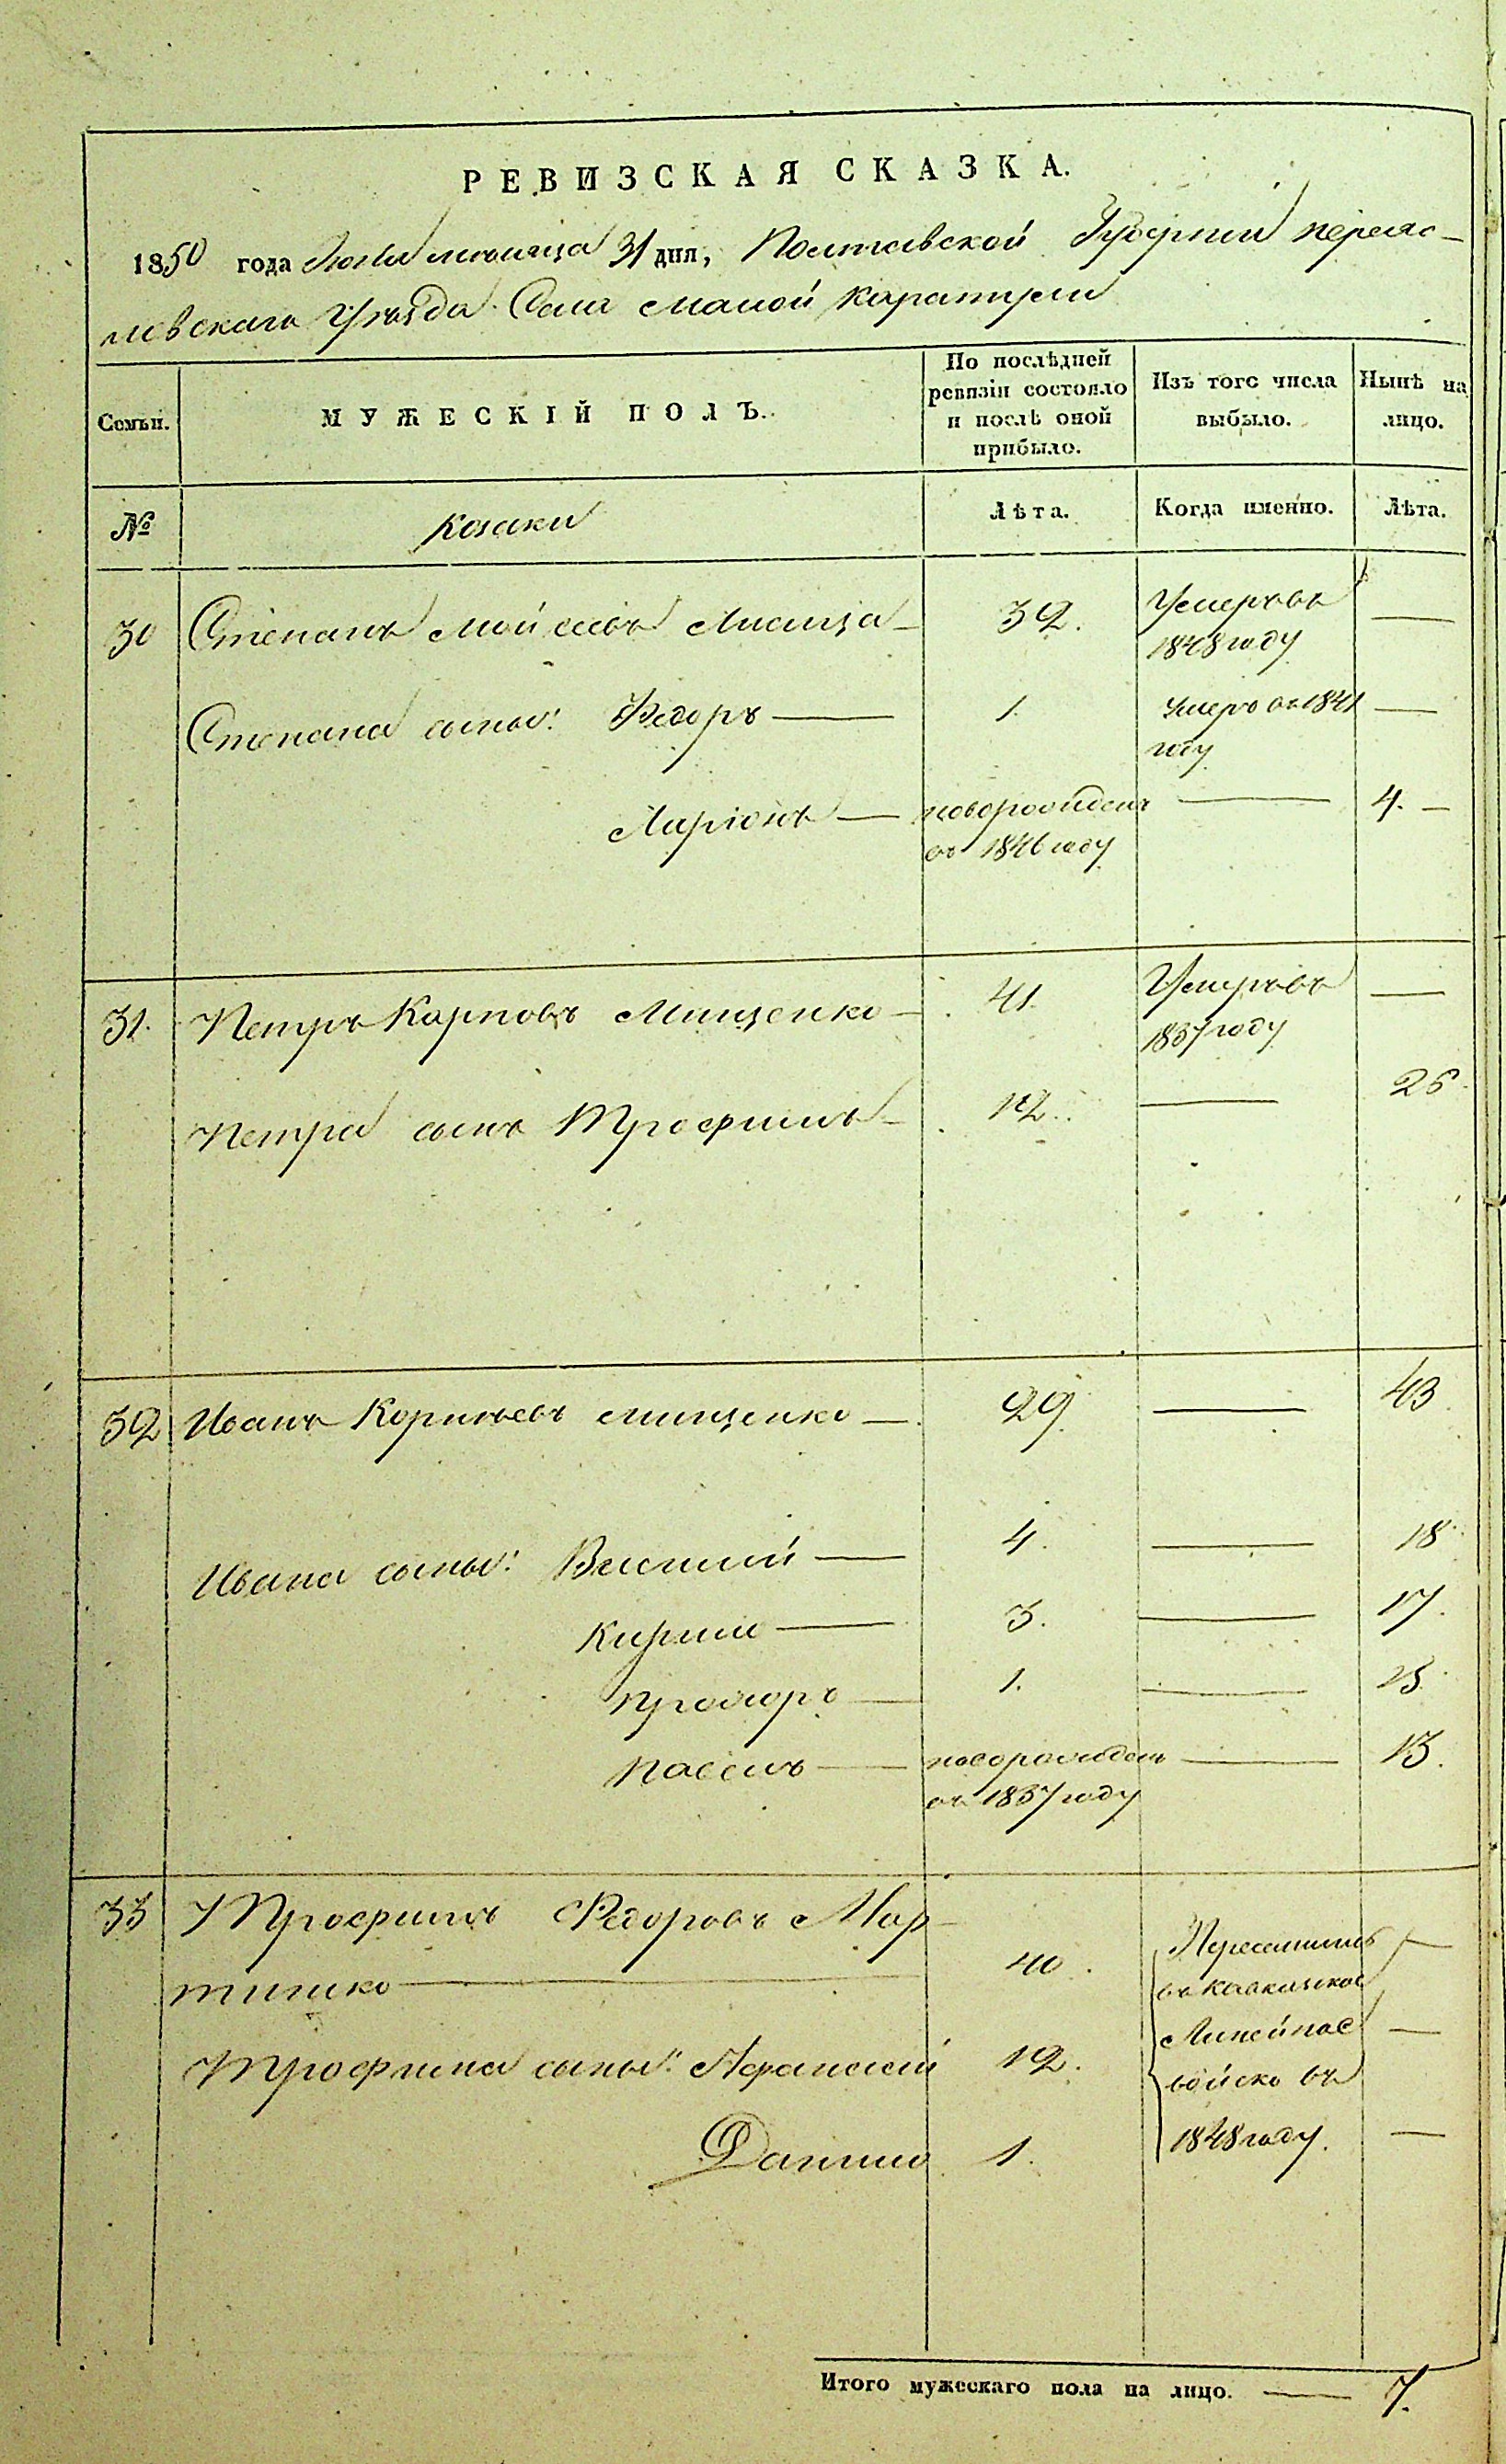 РЕВИЗСКАЯ СКАЗКА.
1850 года Июля месяца 31 дня, Полтавской Губерніи переяс-
лавскаго Уѣзда Села малой каратули
Семьи. МУЖЕСКІЙ ПОЛЪ. По послѣдней ревизіи состояло и послѣ оной прибыло. Изъ того числа выбыло. Нынѣ на лицо.
№ козаки Лѣта. Когда именно. Лѣта.
30 Степанъ Мойсеевъ Лисица 32. Умеръ въ 1848 году —
Степана сыновья: Ѳедоръ — 1. умеръ въ 1841 году —
Ларіонъ — новорожденъ въ 1846 году — 4. —
31. Петръ Карповъ Мищенко — 41. Умеръ въ 1837 году —
Петра сынъ Трофимъ — 12. — 26.
32 Иванъ Корнѣевъ мищенко — 29. — 43
Ивана сыновья: Василий — 4. — 18
Кирило — 3. — 17.
прохоръ — 1. — 15.
новорожденъ въ 1837 году — 13.
33 Трофимъ Ѳедоровъ Мар-
тиненко — 40. Переселились —
въ кавказкое
Трофима сыновья: Афанасий 12. Линейное —
войско въ
Данило 1. 1848 году. —
Итого мужескаго пола на лицо. — 7.